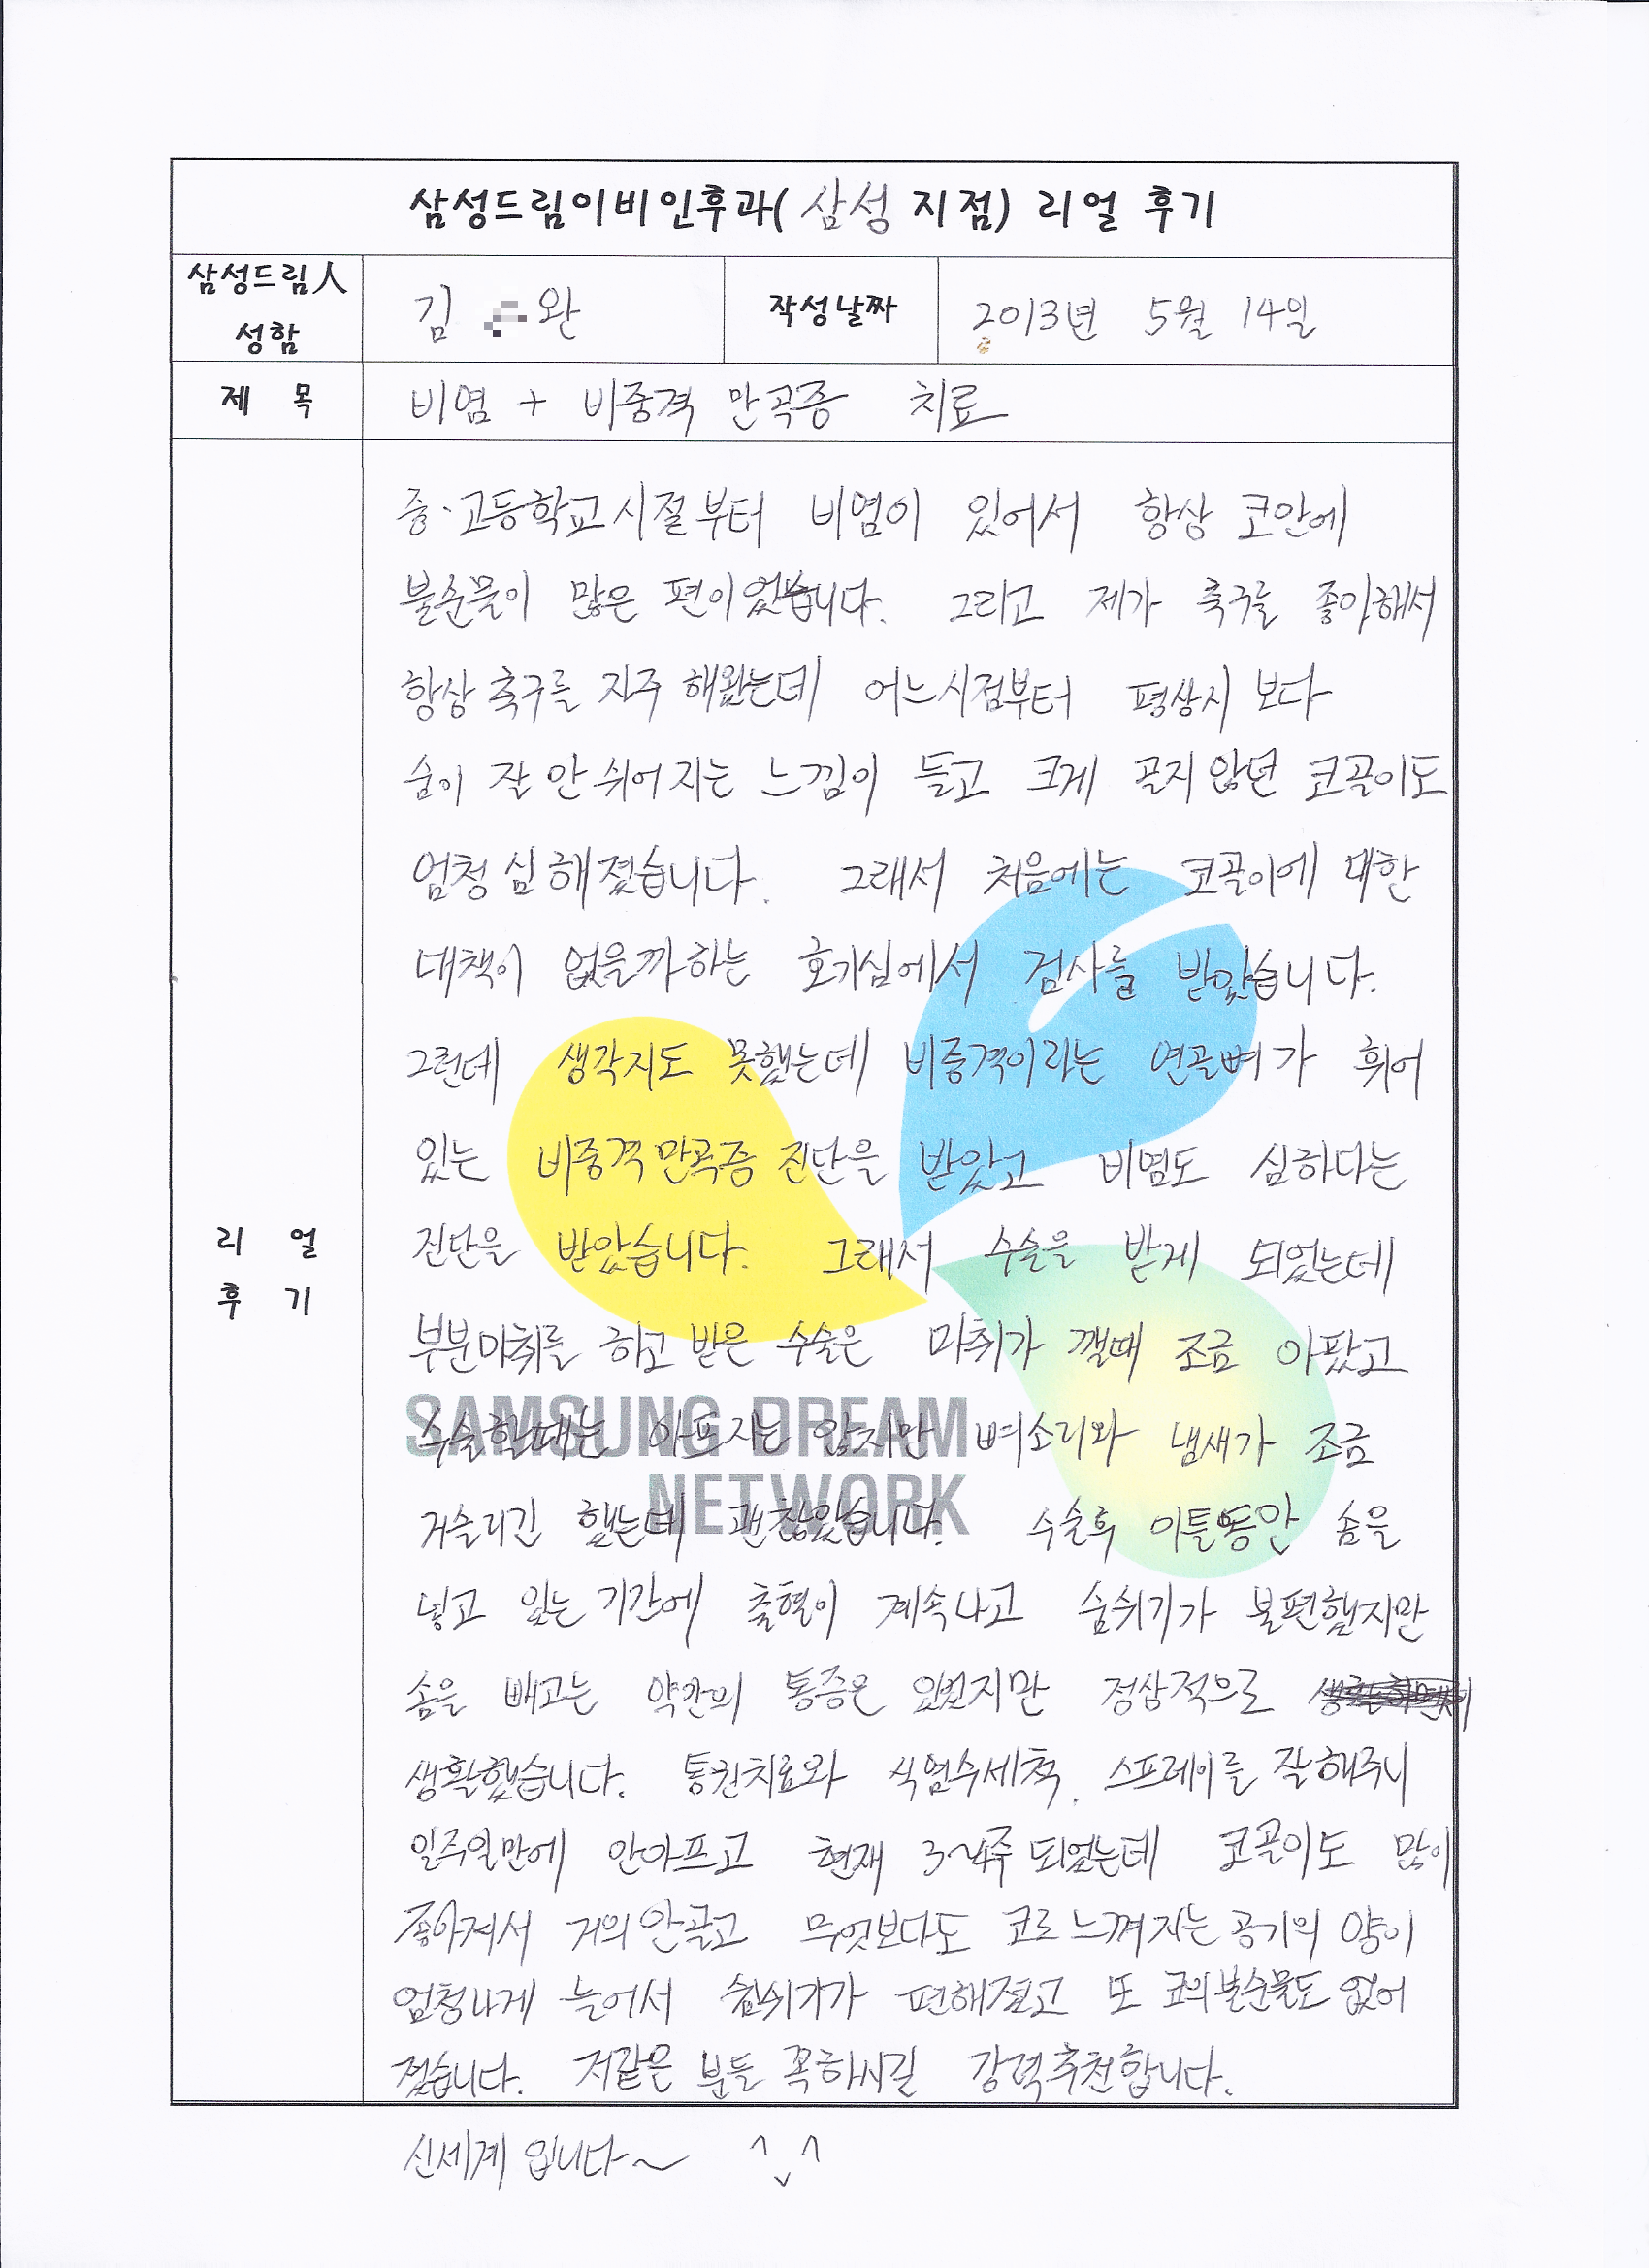 삼성드림이비인후과( 삼성 지점) 리얼 후기
삼성드림人 성함
김 완
작성날짜
2013년 5월 14일
제 목
비염 + 비중격 만곡증 치료
리 얼 후 기
중·고등학교시절부터 비염이 있어서 항상 코안에
불순물이 많은 편이었습니다. 그리고 제가 축구를 좋아해서
항상 축구를 자주 해왔는데 어느시점부터 평상시 보다
숨이 잘 안 쉬어 지는 느낌이 들고 크게 골지 않던 코골이도
엄청 심해졌습니다. 그래서 처음에는 코골이에 대한
대책이 없을까하는 호기심에서 검사를 받았습니다.
그런데 생각지도 못했는데 비중격이라는 연골뼈가 휘어
있는 비중격만곡증 진단을 받았고 비염도 심하다는
진단을 받았습니다. 그래서 수술을 받게 되었는데
부분마취를 하고 받은 수술은 마취가 깰때 조금 아팠고
수술할때는 아프지는 않지만 뼈소리와 냄새가 조금
거슬리긴 했는데 괜찮았습니다. 수술후 이틀동안 솜을
넣고 있는 기간에 출혈이 계속나고 숨쉬기가 불편했지만
솜을 빼고는 약간의 통증은 있었지만 정상적으로
생활했습니다. 통원치료와 식염수세척, 스프레이를 잘해주니
일주일만에 안아프고 현재 3~4주 되었는데 코골이도 많이
좋아져서 거의 안골고 무엇보다도 코로 느껴지는 공기의 양이
엄청나게 늘어서 숨쉬기가 편해졌고 또 코의 불순물도 없어
졌습니다. 저같은 분들 꼭하시길 강력추천합니다.
신세계 입니다~ ^ᴗ^
SAMSUNG DREAM
NETWORK